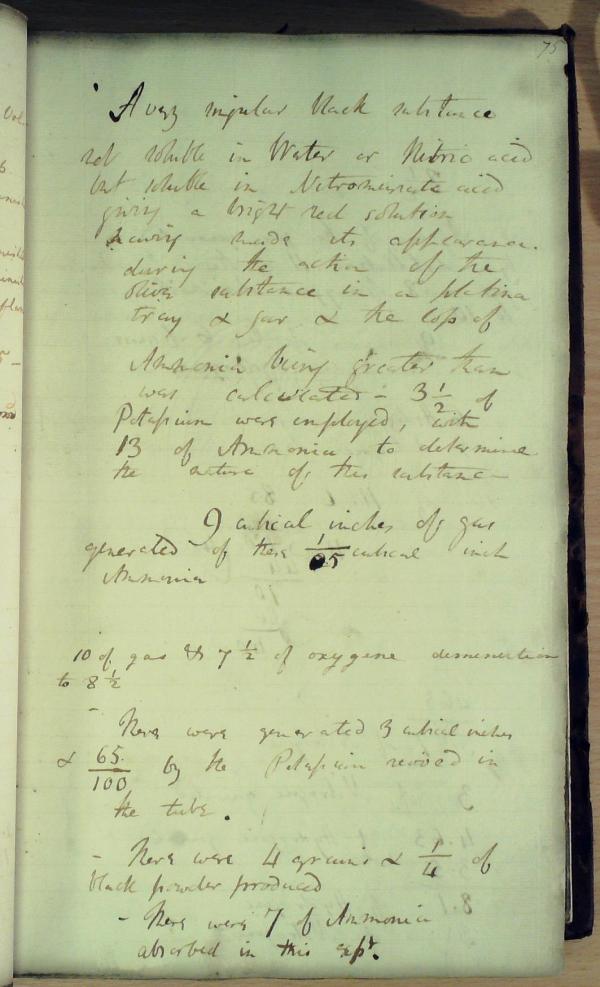 75
A very singular black substance
not soluble in Water or Nitric acid
but soluble in Nitromuriatic acid
giving a bright red solution
having made its appearance.
during the action of the
olive substance in a platina
tray & gas & the loss of
Ammonia being greater than
was calculated - 3 1/2 of
Potassium were employed, with
13 of Ammonia to determine
the nature of this substance -
9 cubical inches of gas
generated of these 1/25 cubical inch
Ammonia
10 of gas & 7 1/2 of oxygene
to 8 1/2
- There were generated 3 cubical inches
& 65/100 by the Potassium revived in
the tube.
- There were 4 grains & 1/4 of
black powder produced
- There were 7 of Ammonia
absorbed in this expt.